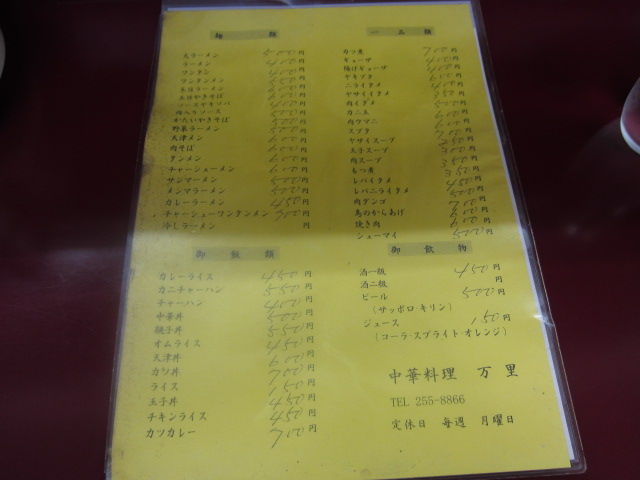 麺類
大ラーメン 500円
ラーメン 400円
ワンタン 400円
ワンタンメン 550円
五目ラーメン 円
五目やきそば 円
ソースヤキソバ 400円
肉入りソース 円
かたいやきそば 円
野菜ラーメン 円
天津メン 円
肉そば 円
タンメン 円
チャーシューメン 円
サンマーメン 円
メンマラーメン 円
カレーラーメン 450円
チャーシューワンタンメン 円
冷しラーメン 円
御飯類
カレーライス 450円
カニチャーハン 550円
チャーハン 400円
中華丼 円
親子丼 550円
オムライス 450円
天津丼 円
カツ丼 700円
ライス 150円
玉子丼 450円
チキンライス 450円
カツカレー 700円
一品類
カツ煮 700円
ギョーザ 400円
揚げギョーザ 400円
ヤキブタ 円
ニライタメ 400円
ヤサイイタメ 350円
肉イタメ 円
カニ玉 円
肉ウマニ 円
スブタ 700円
ヤサイスープ 円
玉子スープ 円
肉スープ 350円
もつ煮 円
レバイタメ 450円
レバニライタメ 円
肉ダンゴ 700円
鳥のからあげ 円
焼き肉 円
シューマイ 円
御飲物
酒一級 450円
酒二級 円
ビール 500円
(サッポロ・キリン)
ジュース 150円
(コーラ・スプライト・オレンジ)
中華料理 万里
TEL 255-8866
定休日 毎週 月曜日